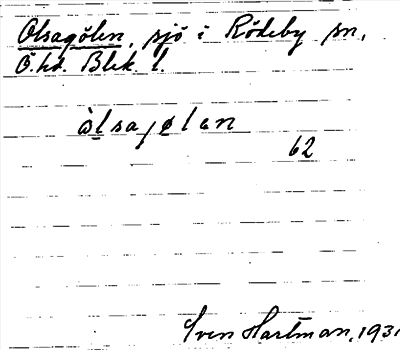 Olsagölen, sjö i Rödeby sn,
Ö. hd. Blek. l.
ålsajølan
62
Sven Hartman, 1931